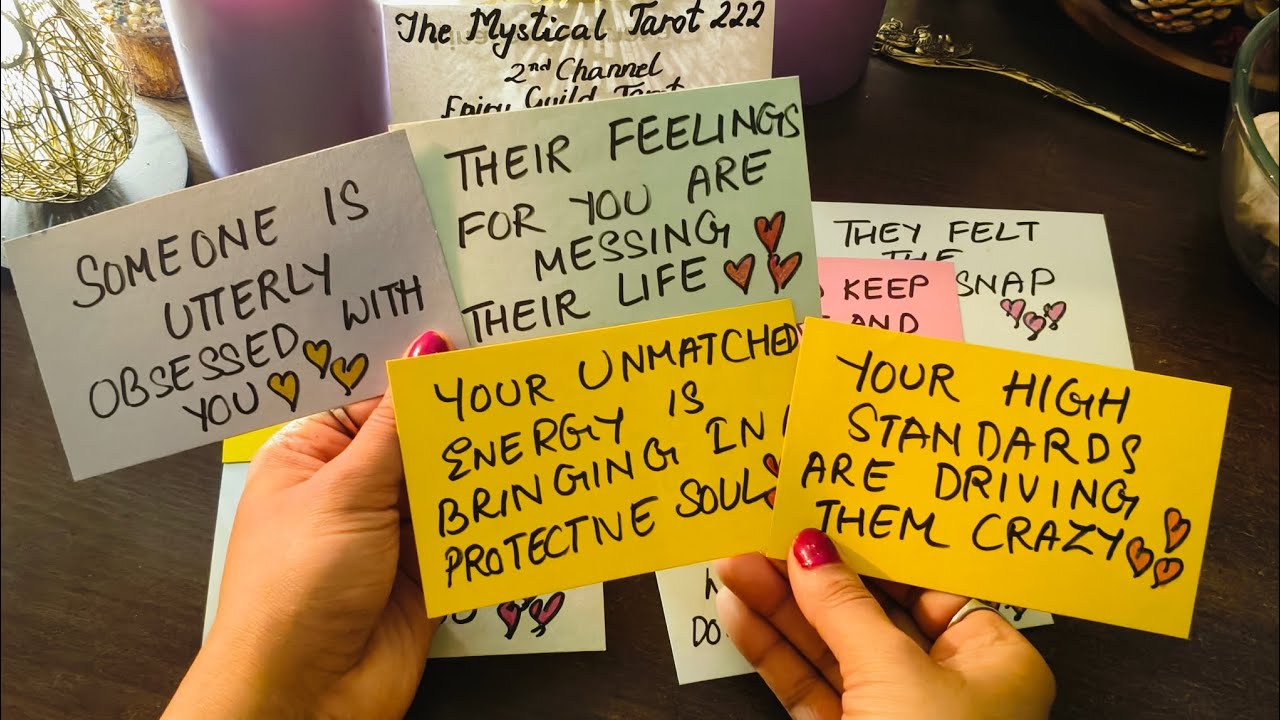 The Mystical Tarot 222
2nd Channel
Fairy Guild Tarot
THEIR FEELINGS
FOR YOU ARE
MESSING
THEIR LIFE
SOMEONE IS
UTTERLY
OBSESSED WITH
YOU
THEY FELT
THE
SNAP
KEEP
AND
YOUR UNMATCHED
ENERGY IS
BRINGING IN
PROTECTIVE SOUL
YOUR HIGH
STANDARDS
ARE DRIVING
THEM CRAZY
DO